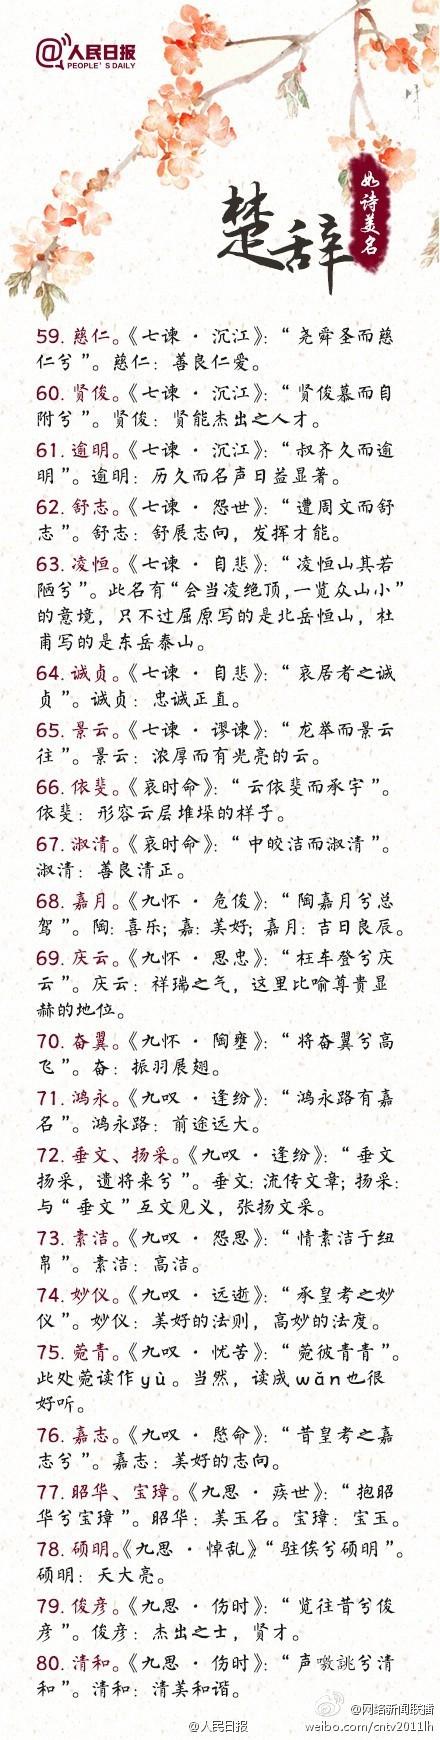 @人民日报
PEOPLE'S DAILY
楚辞
如诗美名
59. 慈仁。《七谏·沉江》：“尧舜圣而慈
仁兮”。慈仁：善良仁爱。
60. 贤俊。《七谏·沉江》：“贤俊慕而自
附兮”。贤俊：贤能杰出之人才。
61. 逾明。《七谏·沉江》：“叔齐久而逾
明”。逾明：历久而名声日益显著。
62. 舒志。《七谏·怨世》：“遭周文而舒
志”。舒志：舒展志向，发挥才能。
63. 凌恒。《七谏·自悲》：“凌恒山其若
陋兮”。此名有“会当凌绝顶，一览众山小”
的意境，只不过屈原写的是北岳恒山，杜
甫写的是东岳泰山。
64. 诚贞。《七谏·自悲》：“哀居者之诚
贞”。诚贞：忠诚正直。
65. 景云。《七谏·谬谏》：“龙举而景云
往”。景云：浓厚而有光亮的云。
66. 依斐。《哀时命》：“云依斐而承宇”。
依斐：形容云层堆垛的样子。
67. 淑清。《哀时命》：“中皎洁而淑清”。
淑清：善良清正。
68. 嘉月。《九怀·危俊》：“陶嘉月兮总
驾”。陶：喜乐；嘉：美好；嘉月：吉日良辰。
69. 庆云。《九怀·思忠》：“枉车登兮庆
云”。庆云：祥瑞之气，这里比喻尊贵显
赫的地位。
70. 奋翼。《九怀·陶壅》：“将奋翼兮高
飞”。奋：振羽展翅。
71. 鸿永。《九叹·逢纷》：“鸿永路有嘉
名”。鸿永路：前途远大。
72. 垂文、扬采。《九叹·逢纷》：“垂文
扬采，遗将来兮”。垂文：流传文章；扬采：
与“垂文”互文见义，张扬文采。
73. 素洁。《九叹·怨思》：“情素洁于纽
帛”。素洁：高洁。
74. 妙仪。《九叹·远逝》：“承皇考之妙
仪”。妙仪：美好的法则，高妙的法度。
75. 菀青。《九叹·忧苦》：“菀彼青青”。
此处菀读作yù。当然，读成wǎn也很
好听。
76. 嘉志。《九叹·愍命》：“昔皇考之嘉
志兮”。嘉志：美好的志向。
77. 昭华、宝璋。《九思·疾世》：“抱昭
华兮宝璋”。昭华：美玉名。宝璋：宝玉。
78. 硕明。《九思·悼乱》“驻俟兮硕明”。
硕明：天大亮。
79. 俊彦。《九思·伤时》：“览往昔兮俊
彦”。俊彦：杰出之士，贤才。
80. 清和。《九思·伤时》：“声噭誂兮清
和”。清和：清美和谐。
@人民日报
@网络新闻联播
weibo.com/cntv2011lh